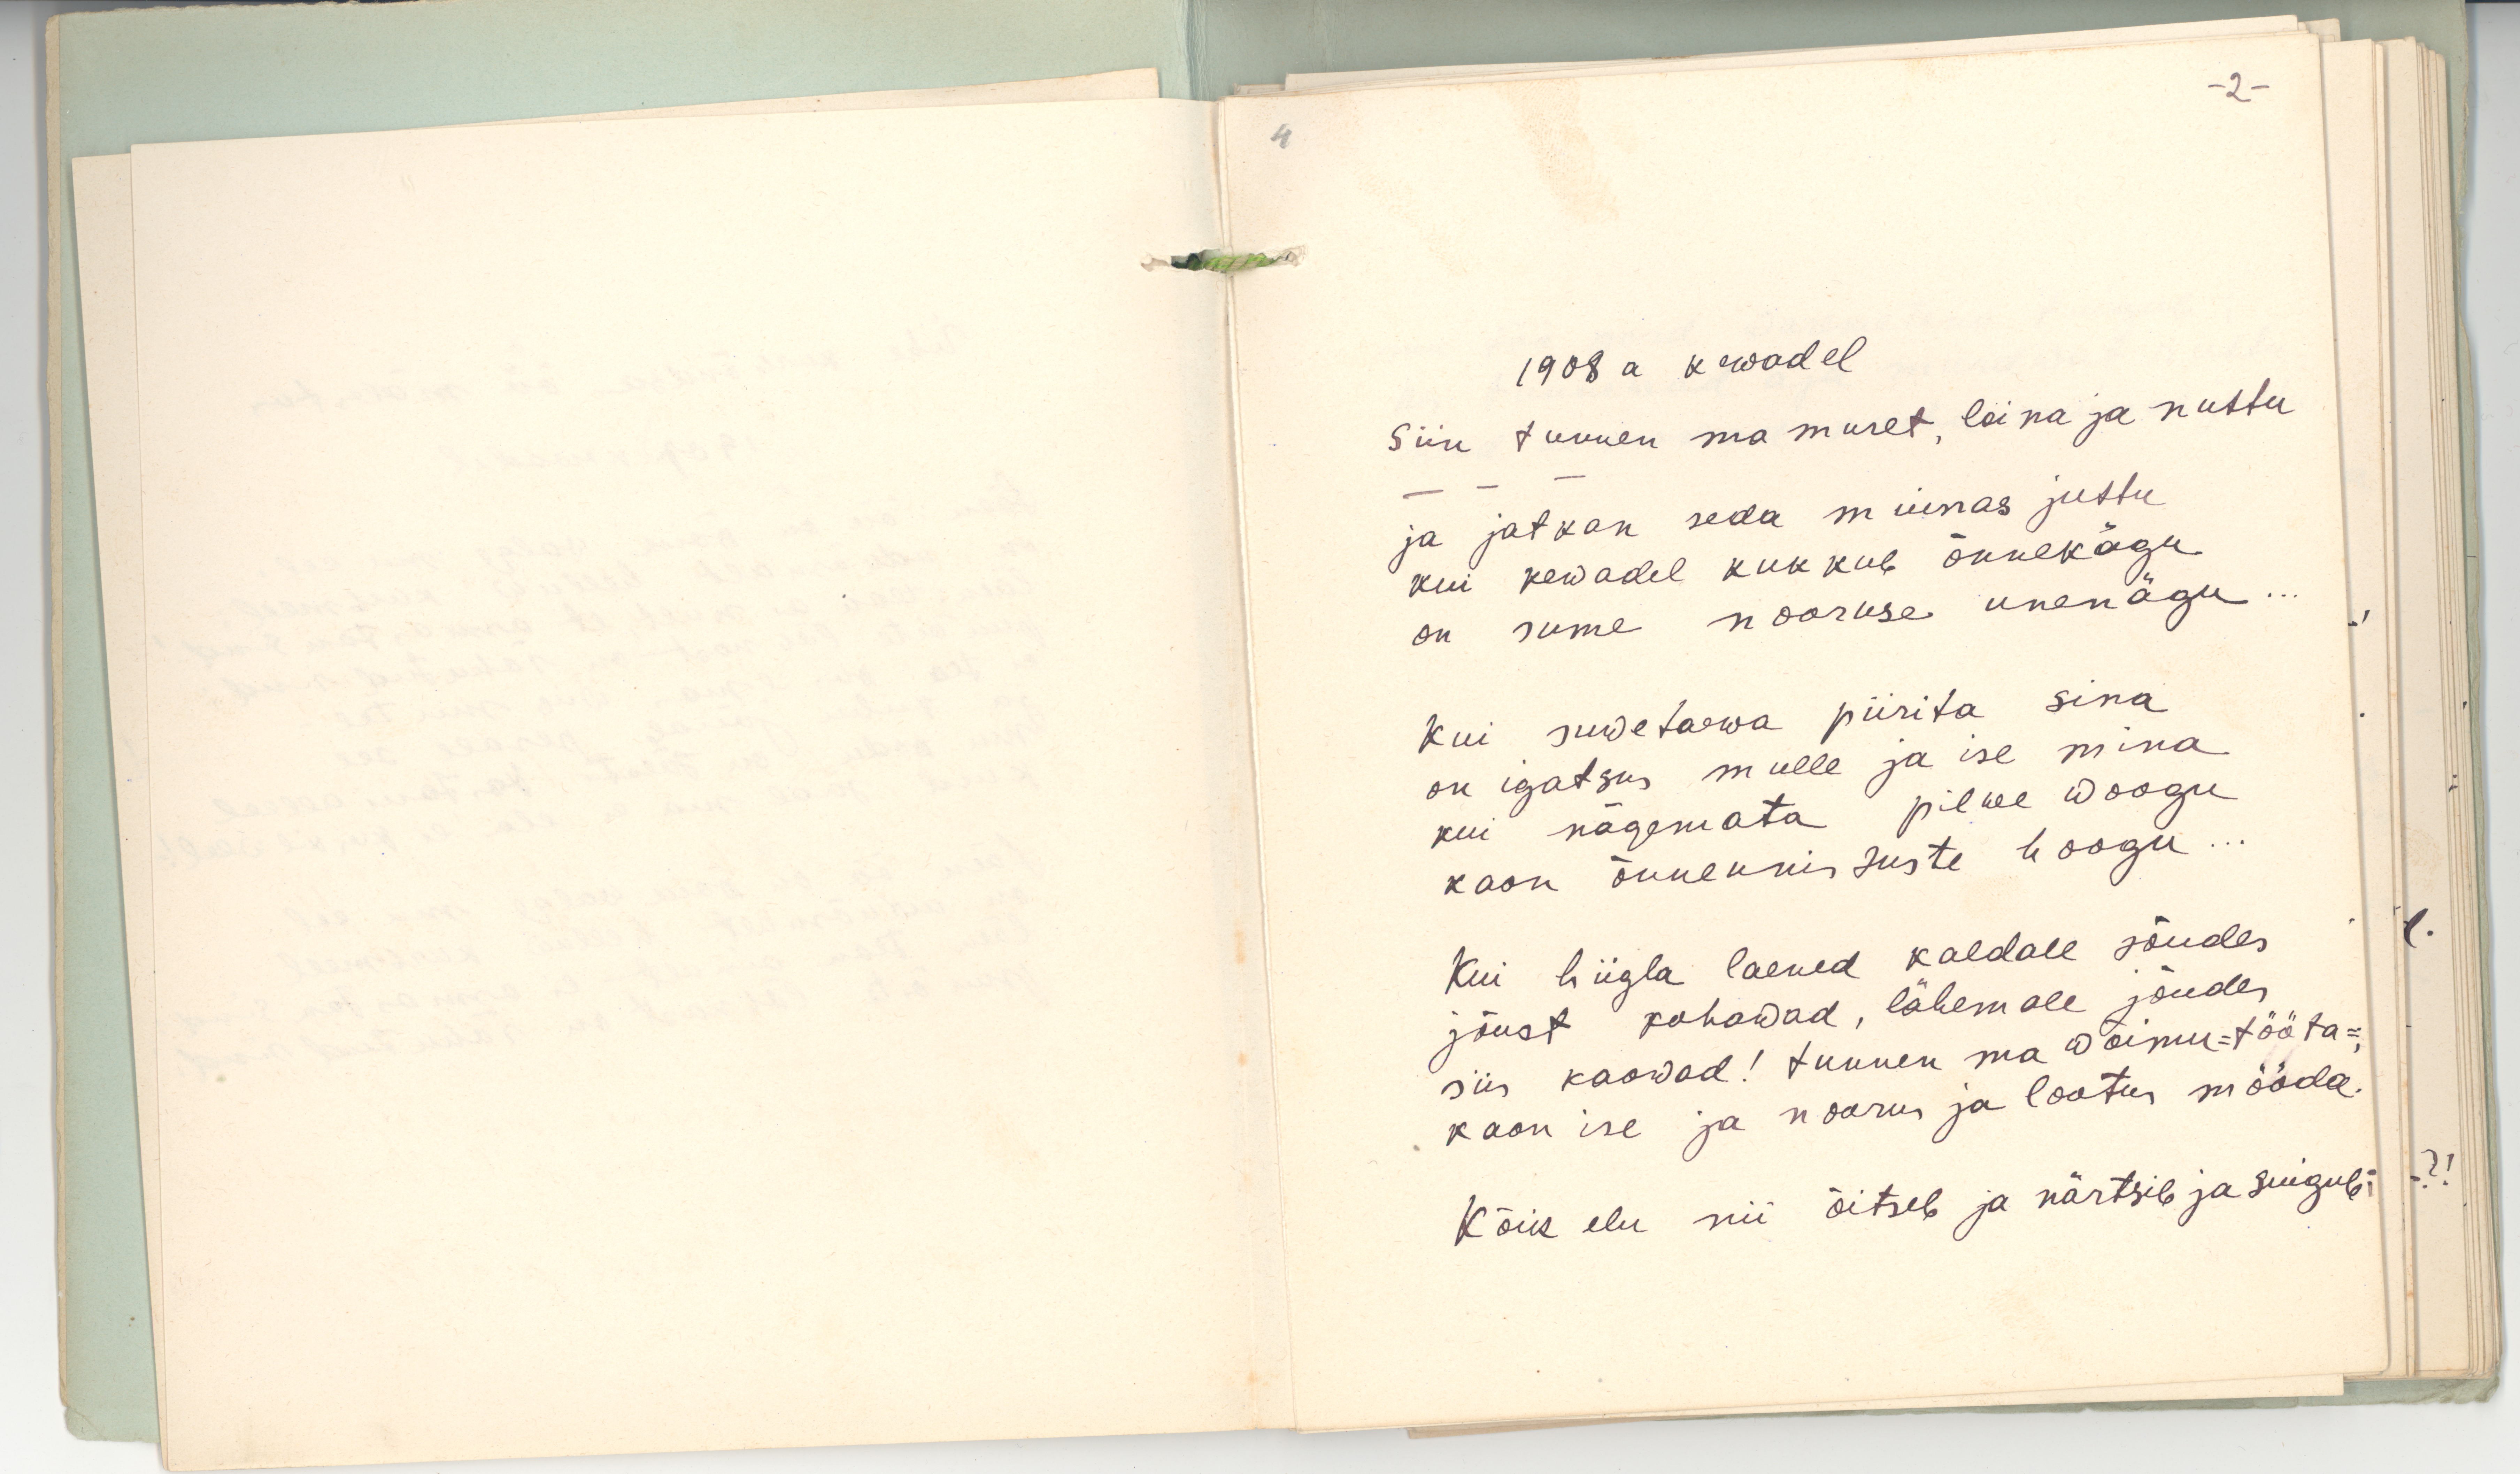 -2-
4
1908 a kewadel
Siin tunnen ma muret, leina ja nuttu
— — —
ja jatkan seda muinas juttu
kui kewadel kukkub õnnekägu
on sume nooruse unenägu...
Kui suwetaewa piirita sina
on igatsus mulle ja ise mina
kui nägemata pilwe woogu
kaon õnneunistuste hoogu...
Kui hiigla laened kaldale sõudes
jõust kohawad, lähemale jõudes
siis kaowad! tunnen ma wõimu=tööta=,
kaon ise ja noorus ja lootus mööda.
Kõik elu nii õitseb ja närtsib ja suigub: